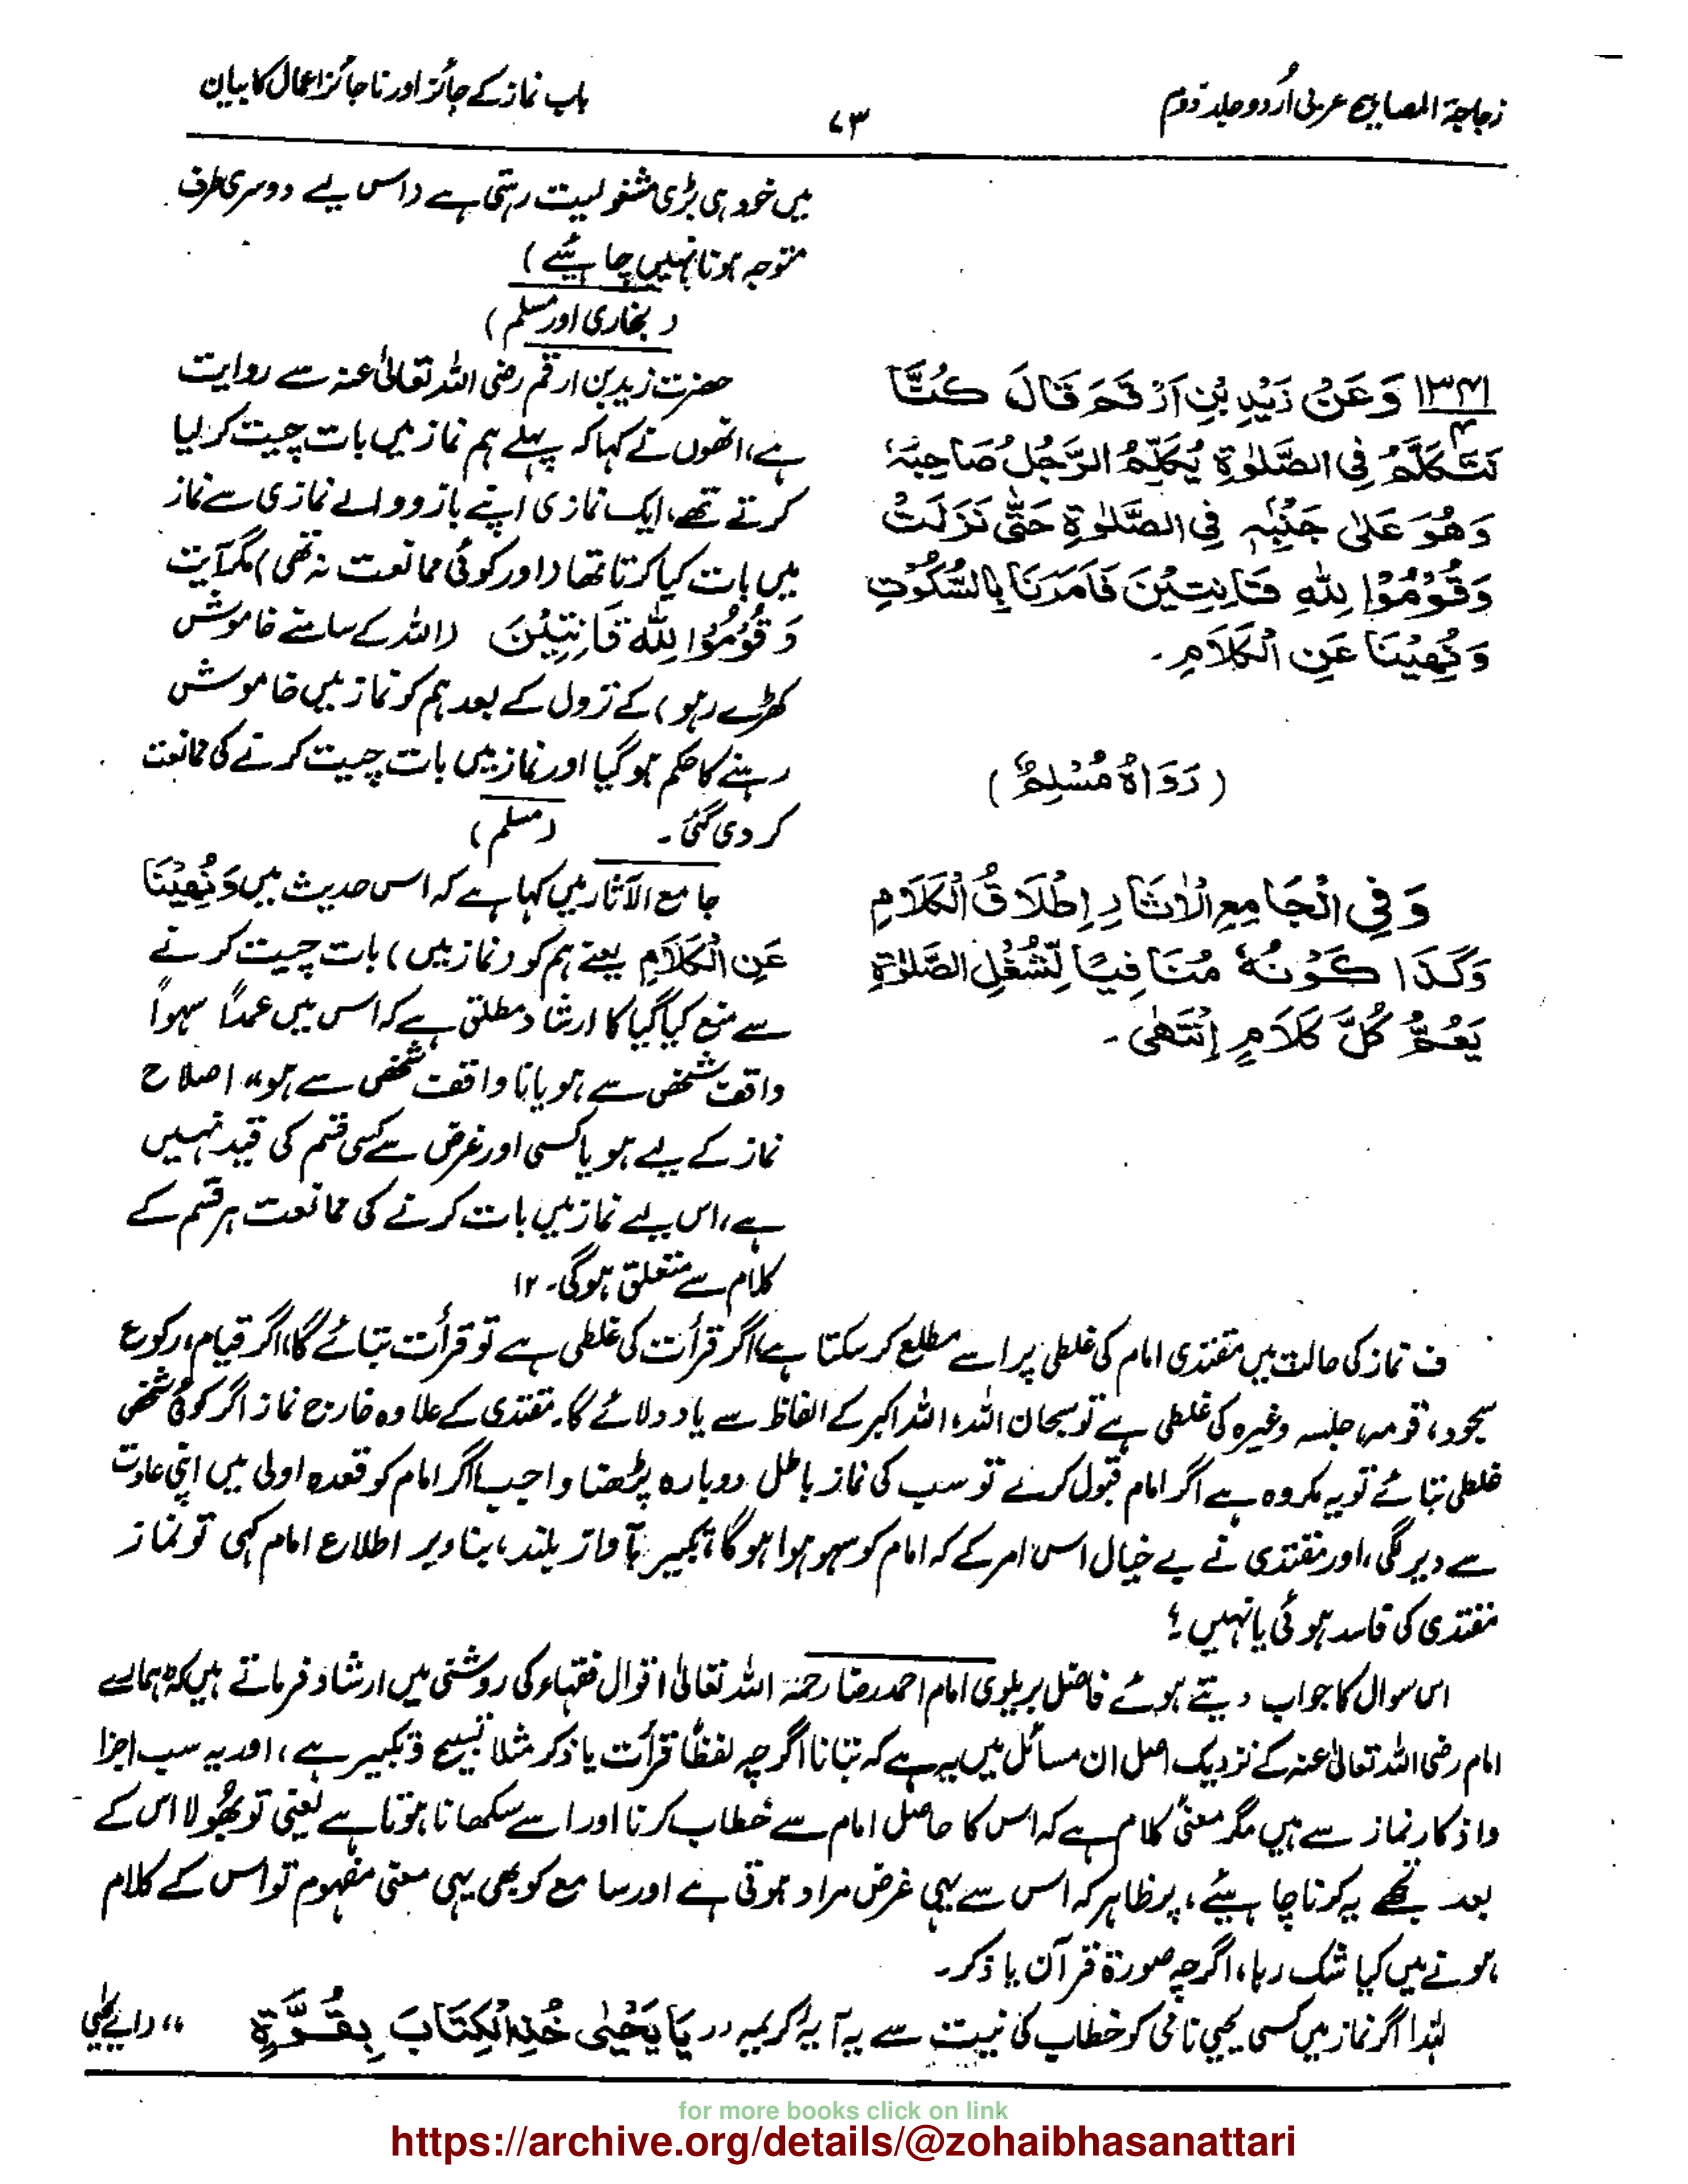 زجاجۃ المصابیح عربی اُردو جلد دوم
۷۳
باب نماز کے جائز اور ناجائز اعمال کا بیان
میں خود ہی بڑی مشغولیت رہتی ہے (اس لیے دوسری طرف
متوجہ ہونا نہیں چاہیئے)
(بخاری اور مسلم)
۱۳۴۱ وَعَنْ زَيْدِ بْنِ اَرْقَمَ قَالَ كُنَّا
نَتَكَلَّمُ فِي الصَّلٰوةِ يُكَلِّمُ الرَّجُلُ صَاحِبَهٗ
وَهُوَ عَلٰى جَنْبِهٖ فِي الصَّلٰوةِ حَتّٰى نَزَلَتْ
وَقُوْمُوْا لِلّٰهِ قَانِتِيْنَ فَاَمَرَنَا بِالسُّكُوْتِ
وَنُهِيْنَا عَنِ الْكَلَامِ۔
(رَوَاهُ مُسْلِمٌ)
حضرت زید بن ارقم رضی اللہ تعالیٰ عنہ سے روایت
ہے، انھوں نے کہا کہ پہلے ہم نماز میں بات چیت کر لیا
کرتے تھے، ایک نمازی اپنے بازو والے نمازی سے نماز
میں بات کیا کرتا تھا (اور کوئی ممانعت نہ تھی) مگر آیت
وَقُوْمُوْا لِلّٰهِ قَانِتِيْنَ (اللہ کے سامنے خاموش
کھڑے رہو) کے نزول کے بعد ہم کو نماز میں خاموش
رہنے کا حکم ہو گیا اور نماز میں بات چیت کرنے کی ممانعت
کر دی گئی۔ (مسلم)
وَفِي الْجَامِعِ الْاٰثَارِ اِطْلَاقُ الْكَلَامِ
وَكَذَا كَوْنُهٗ مُنَافِيًا لِّشُغْلِ الصَّلٰوةِ
يَعُمُّ كُلَّ كَلَامٍ اِنْتَهٰى۔
جامع الآثار میں کہا ہے کہ اس حدیث میں وَنُهِيْنَا
عَنِ الْكَلَامِ یعنے ہم کو (نماز میں) بات چیت کرنے
سے منع کیا گیا کا ارشاد مطلق ہے کہ اس میں عمداً سہواً
واقف شخص سے ہو یا نا واقف شخص سے ہو" اصلاح
نماز کے لیے ہو یا کسی اور غرض سے کسی قسم کی قید نہیں
ہے، اس لیے نماز میں بات کرنے کی ممانعت ہر قسم کے
کلام سے متعلق ہوگی۔ ۱۲
ف نماز کی حالت میں مقتدی امام کی غلطی پر اسے مطلع کر سکتا ہے، اگر قرأت کی غلطی ہے تو قرأت بتائے گا، اگر قیام، رکوع
سجود، قومہ، جلسہ وغیرہ کی غلطی ہے تو سبحان اللہ، اللہ اکبر کے الفاظ سے یاد دلائے گا۔ مقتدی کے علاوہ خارج نماز اگر کوئی شخص
غلطی بتائے تو یہ مکروہ ہے اگر امام قبول کرے تو سب کی نماز باطل دوبارہ پڑھنا واجب، اگر امام کو قعدہ اولی میں اپنی عادت
سے دیر لگی، اور مقتدی نے بے خیال اس امر کے کہ امام کو سہو ہوا ہوگا، تکبیر بآواز بلند، بناء بر اطلاع امام کہی تو نماز
مقتدی کی فاسد ہوئی یا نہیں؟
اس سوال کا جواب دیتے ہوئے فاضل بریلوی امام احمد رضا رحمۃ اللہ تعالیٰ اقوال فقہاء کی روشنی میں ارشاد فرماتے ہیں کہ ہمارے
امام رضی اللہ تعالیٰ عنہ کے نزدیک اصل ان مسائل میں یہ ہے کہ بتانا اگرچہ لفظاً قرأت یا ذکر مثلاً تسبیح و تکبیر ہے، اور یہ سب اجزا
و اذکار نماز سے ہیں مگر معنیً کلام ہے کہ اس کا حاصل امام سے خطاب کرنا اور اسے سکھانا ہوتا ہے یعنی تو بھولا اس کے
بعد تجھے یہ کرنا چاہیئے، پر ظاہر کہ اس سے یہی غرض مراد ہوتی ہے اور سامع کو بھی یہی معنی مفہوم تو اس کے کلام
ہونے میں کیا شک رہا، اگرچہ صورۃً قرآن یا ذکر۔
لہٰذا اگر نماز میں کسی یحییٰ نامی کو خطاب کی نیت سے یہ آیۂ کریمہ "يَا يَحْيٰى خُذِ الْكِتَابَ بِقُوَّةٍ" (اے یحییٰ
for more books click on link
https://archive.org/details/@zohaibhasanattari